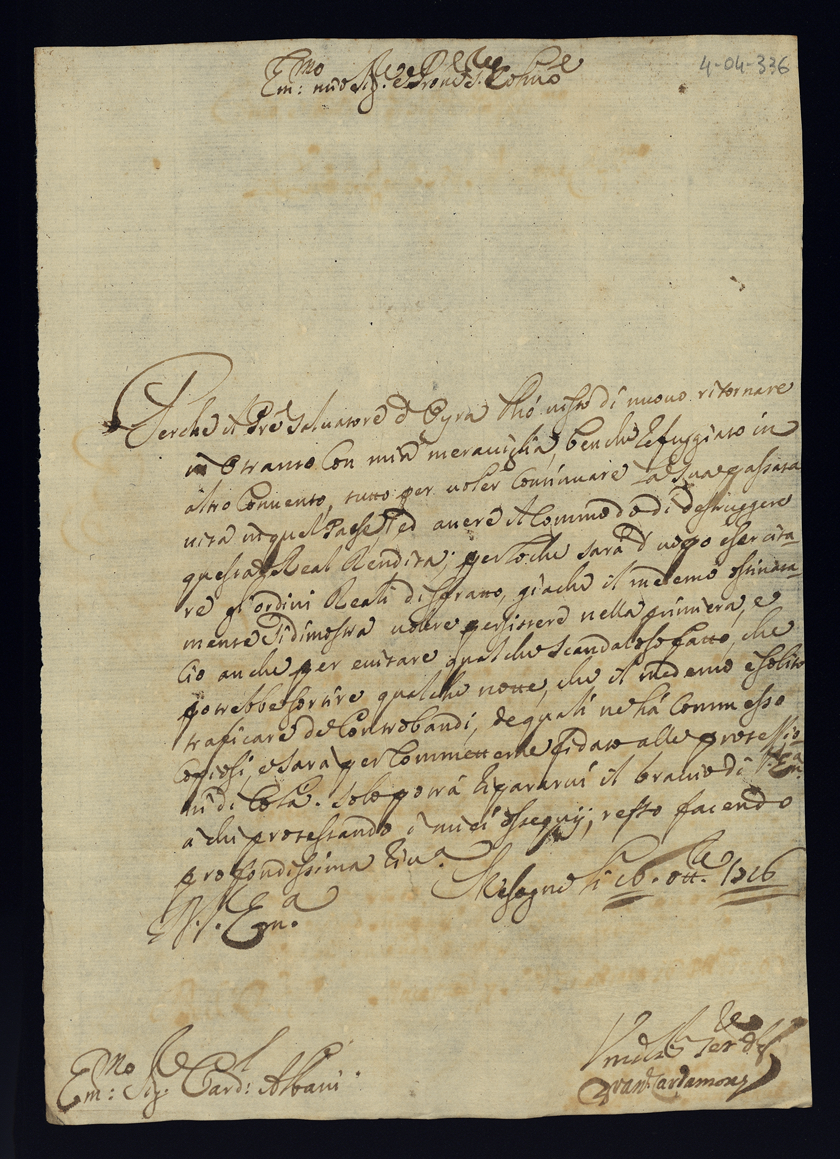 4-04-336
Em:mo mio Sig.re e Pron
Perche il Pre Salvatore d Oyra l'hò visto di nuovo ritornare
in Otranto con mia meraviglia, benche refuggiato in
altro Convento, tutto per voler continuare la sua passata
vita in quel Paese, ed avere il commodo di destruggere
questa Real Rendita; per loche sarà d'uopo esercita-
re gl'ordini Reali di sfratto, giache il medemo ostinata-
mente si dimostra volere persistere nella primiera, e
ciò anche per evitare qualche scandaloso fatto, che
potrebbe sortire qualche notte, che il medemo è solito
traficare de Controbandi, de quali ne hà commesso
copiosi, e sarà per commetterne fidato alle protettio-
ni di costà. Solo potrà ripararvi il braccio di V. Em.a
à chi protestando i miei ossequij, resto facendo
profondissima riv.a
V. Em.a Mesagne li 16. ott.re 1716
Em:mo Sig.re Card:l Albani
Ser.re